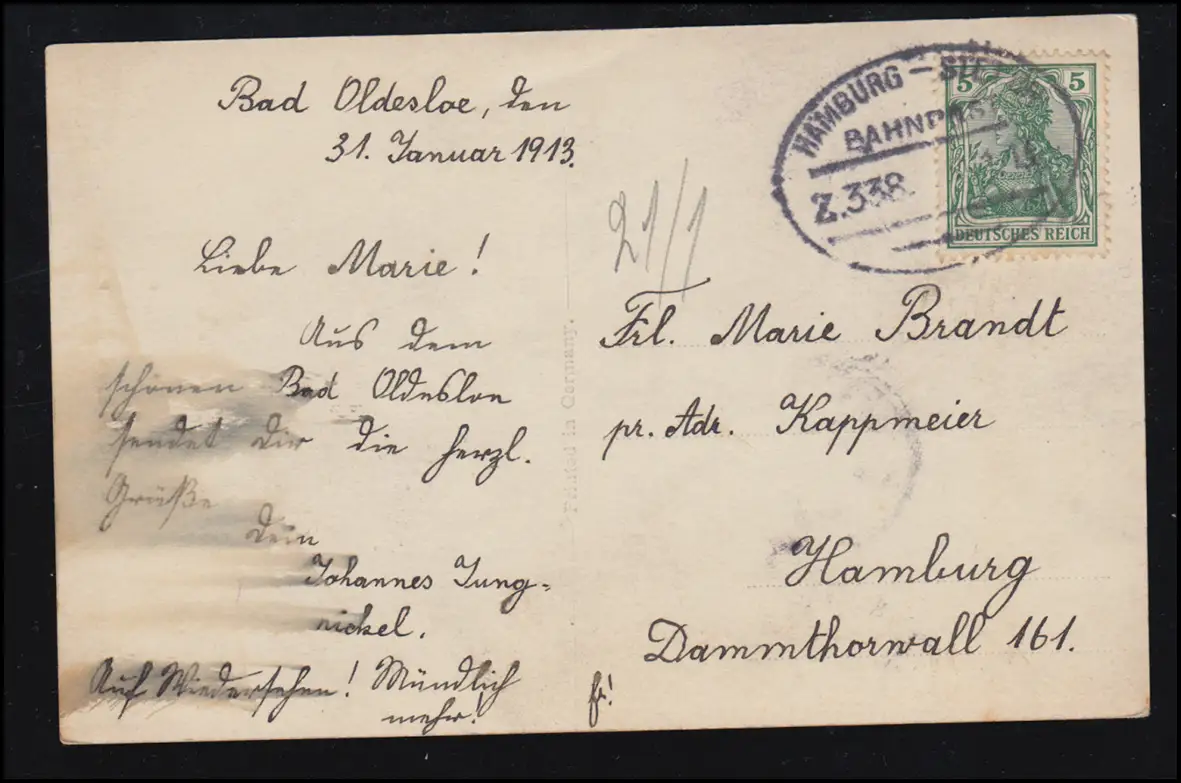 Bad Oldesloe, den
31. Januar 1913.
Liebe Marie!
Aus dem
schönen Bad Oldesloe
sendet Dir die herzl.
Grüße
Dein
Johannes Jung-
nickel.
Auf Wiedersehen! Mündlich
mehr!
Printed in Germany.
21/1
HAMBURG –
BAHNPOST
Z.338.
5 5
DEUTSCHES REICH
Frl. Marie Brandt
pr. Adr. Kappmeier
Hamburg
Dammthorwall 161.
fr!